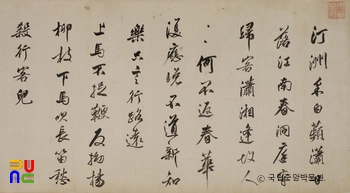 汀洲采白蘋日
落江南春洞庭有
歸客瀟湘逢故人
〻何不返春華
復應晚不道新知
樂只言行路遠
上馬不捉鞭反拗楊
柳枝下馬吹長笛愁
殺行客兒
국립중앙박물관